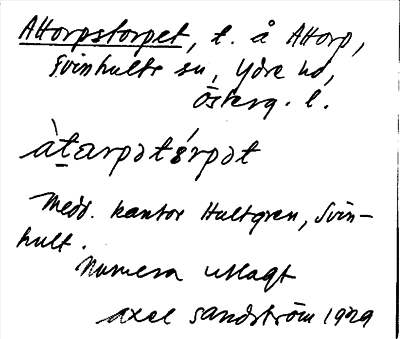 Attorpstorpet, t. å Attorp,
Svinhults sn, Ydre hd,
Österg. l.
àt̠arpətórpət
Medd. kantor Hultgren, Svin-
hult.
Numera utlagt
Axel Sandström 1929